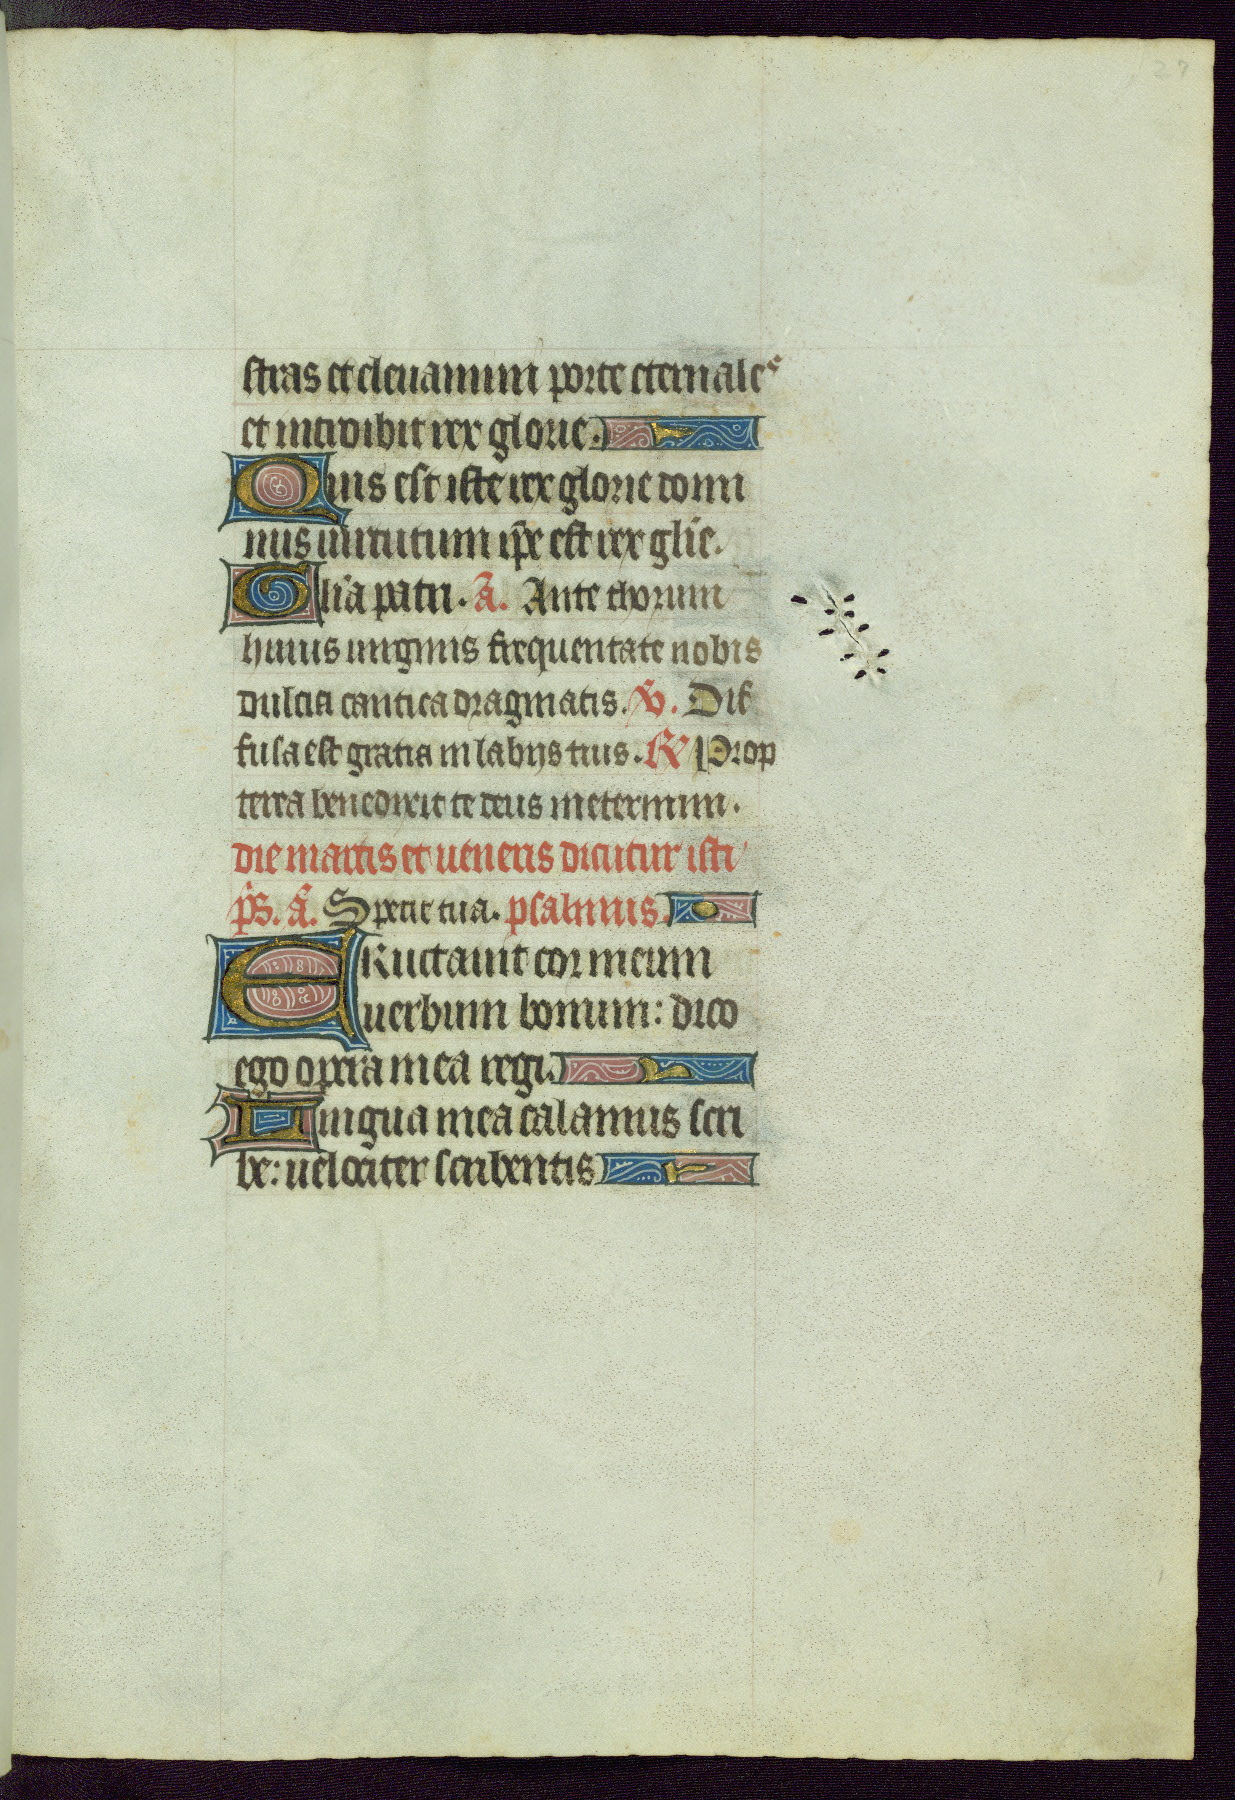 27
stras et eleuamini porte eternales
et introibit rex glorie.
Quis est iste rex glorie domi
nus uirtutum ip̄e est rex glīe.
Glīa patri. A. Ante thorum
huius uirginis frequentate nobis
dulcia cantica dragmatis. V. Dif
fusa est gratia in labijs tuis. R Prop
terea benedixit te deus ineternum.
die martis et ueneris dicutur isti
p̄s. ā. Specie tua. psalmus.
ERuctauit cor meum
uerbum bonum: dico
ego opera mea regi.
Lingua mea calamus scri
be: uelociter scribentis